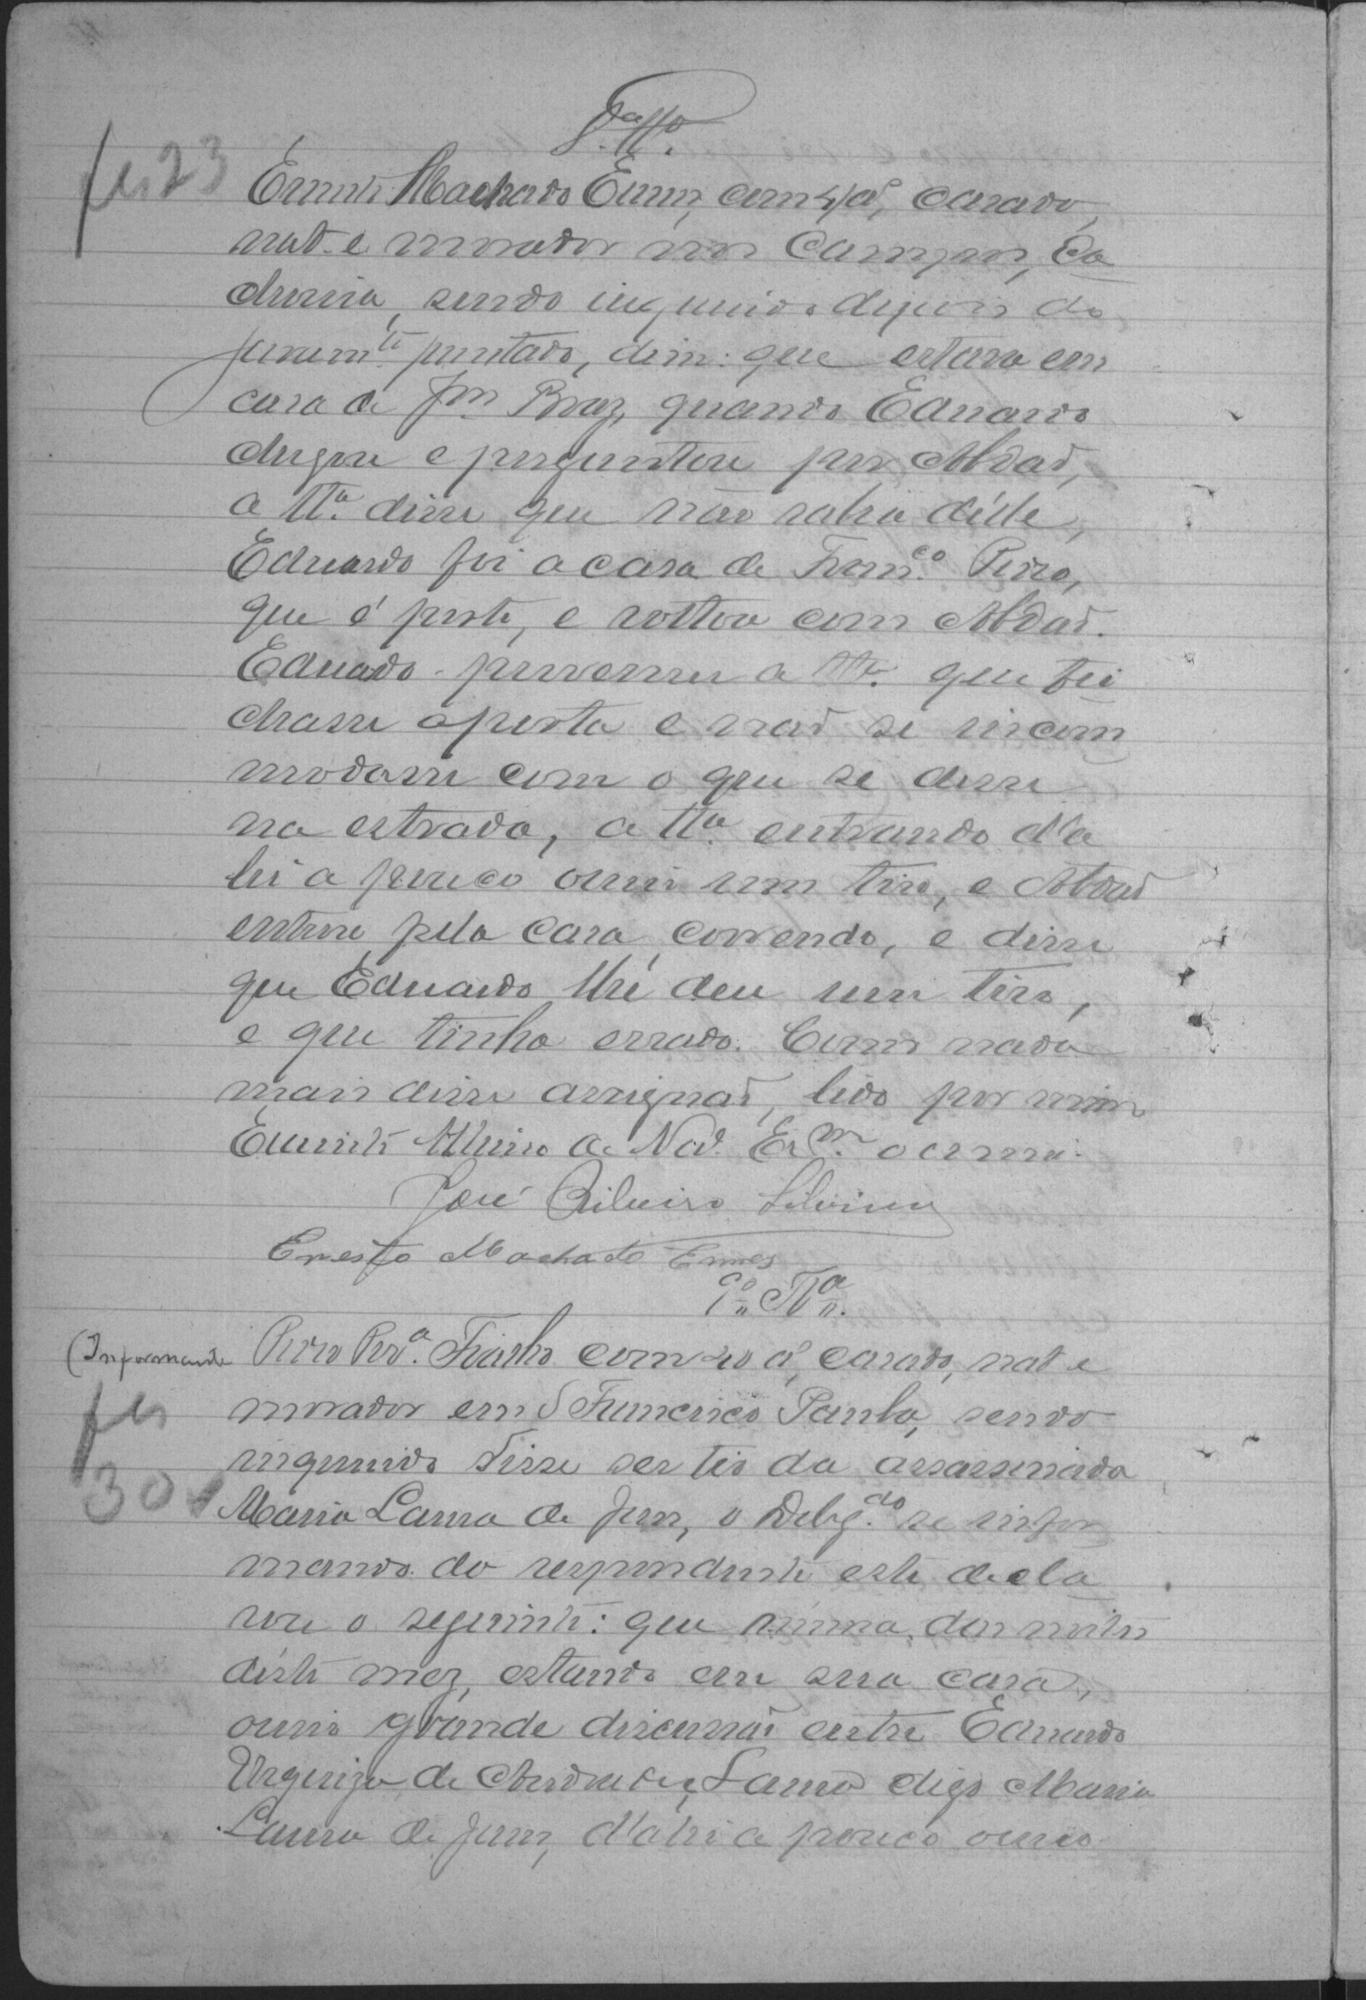 fls 23
Ernesto Machado Ennes, com 41 aº, casado,
nat. e morador nos Campos, Ca
choeira, sendo inquirido depois do
juramto prestado, disse: que estava em
casa de Jm Braz, quando Eduardo
chegou e perguntou por Abdad,
a Ttª disse que não sabia dêlle,
Eduardo foi a casa de Francº Pisso,
que é perto, e voltou com Abdad.
Eduardo preveniu a Ttª que fei
chasse a porta e não se incom
modasse com o que se desse
na estrada, a Ttª entrando d'a
hi a pouco ouviu um tiro, e Abdad
entrou pela casa correndo, e disse
que Eduardo lhe deu um tiro,
e que tinha errado. Como nada
mais disse assignaõ, lido por mim
Evaristo de Nov. Esm. o escrevi.
José Ribeiro Silvino
Ernesto Machado Ennes
1ª Ttª
(Informante Perª Fialho com 20 aº, casado, nat. e
fls 30
morador em S Francisco Paula, sendo
inquirido disse ser tio da assassinada
Maria Laura de Jesus, o Delegdo se infor
mando do respondente este decla
rou o seguinte: que n'uma das noites
déste mez, estando em sua casa,
ouvio grande discussão entre Eduardo
de Andrade e Laura digo Maria
Laura de Jesus, d'ahi a pouco ouvio